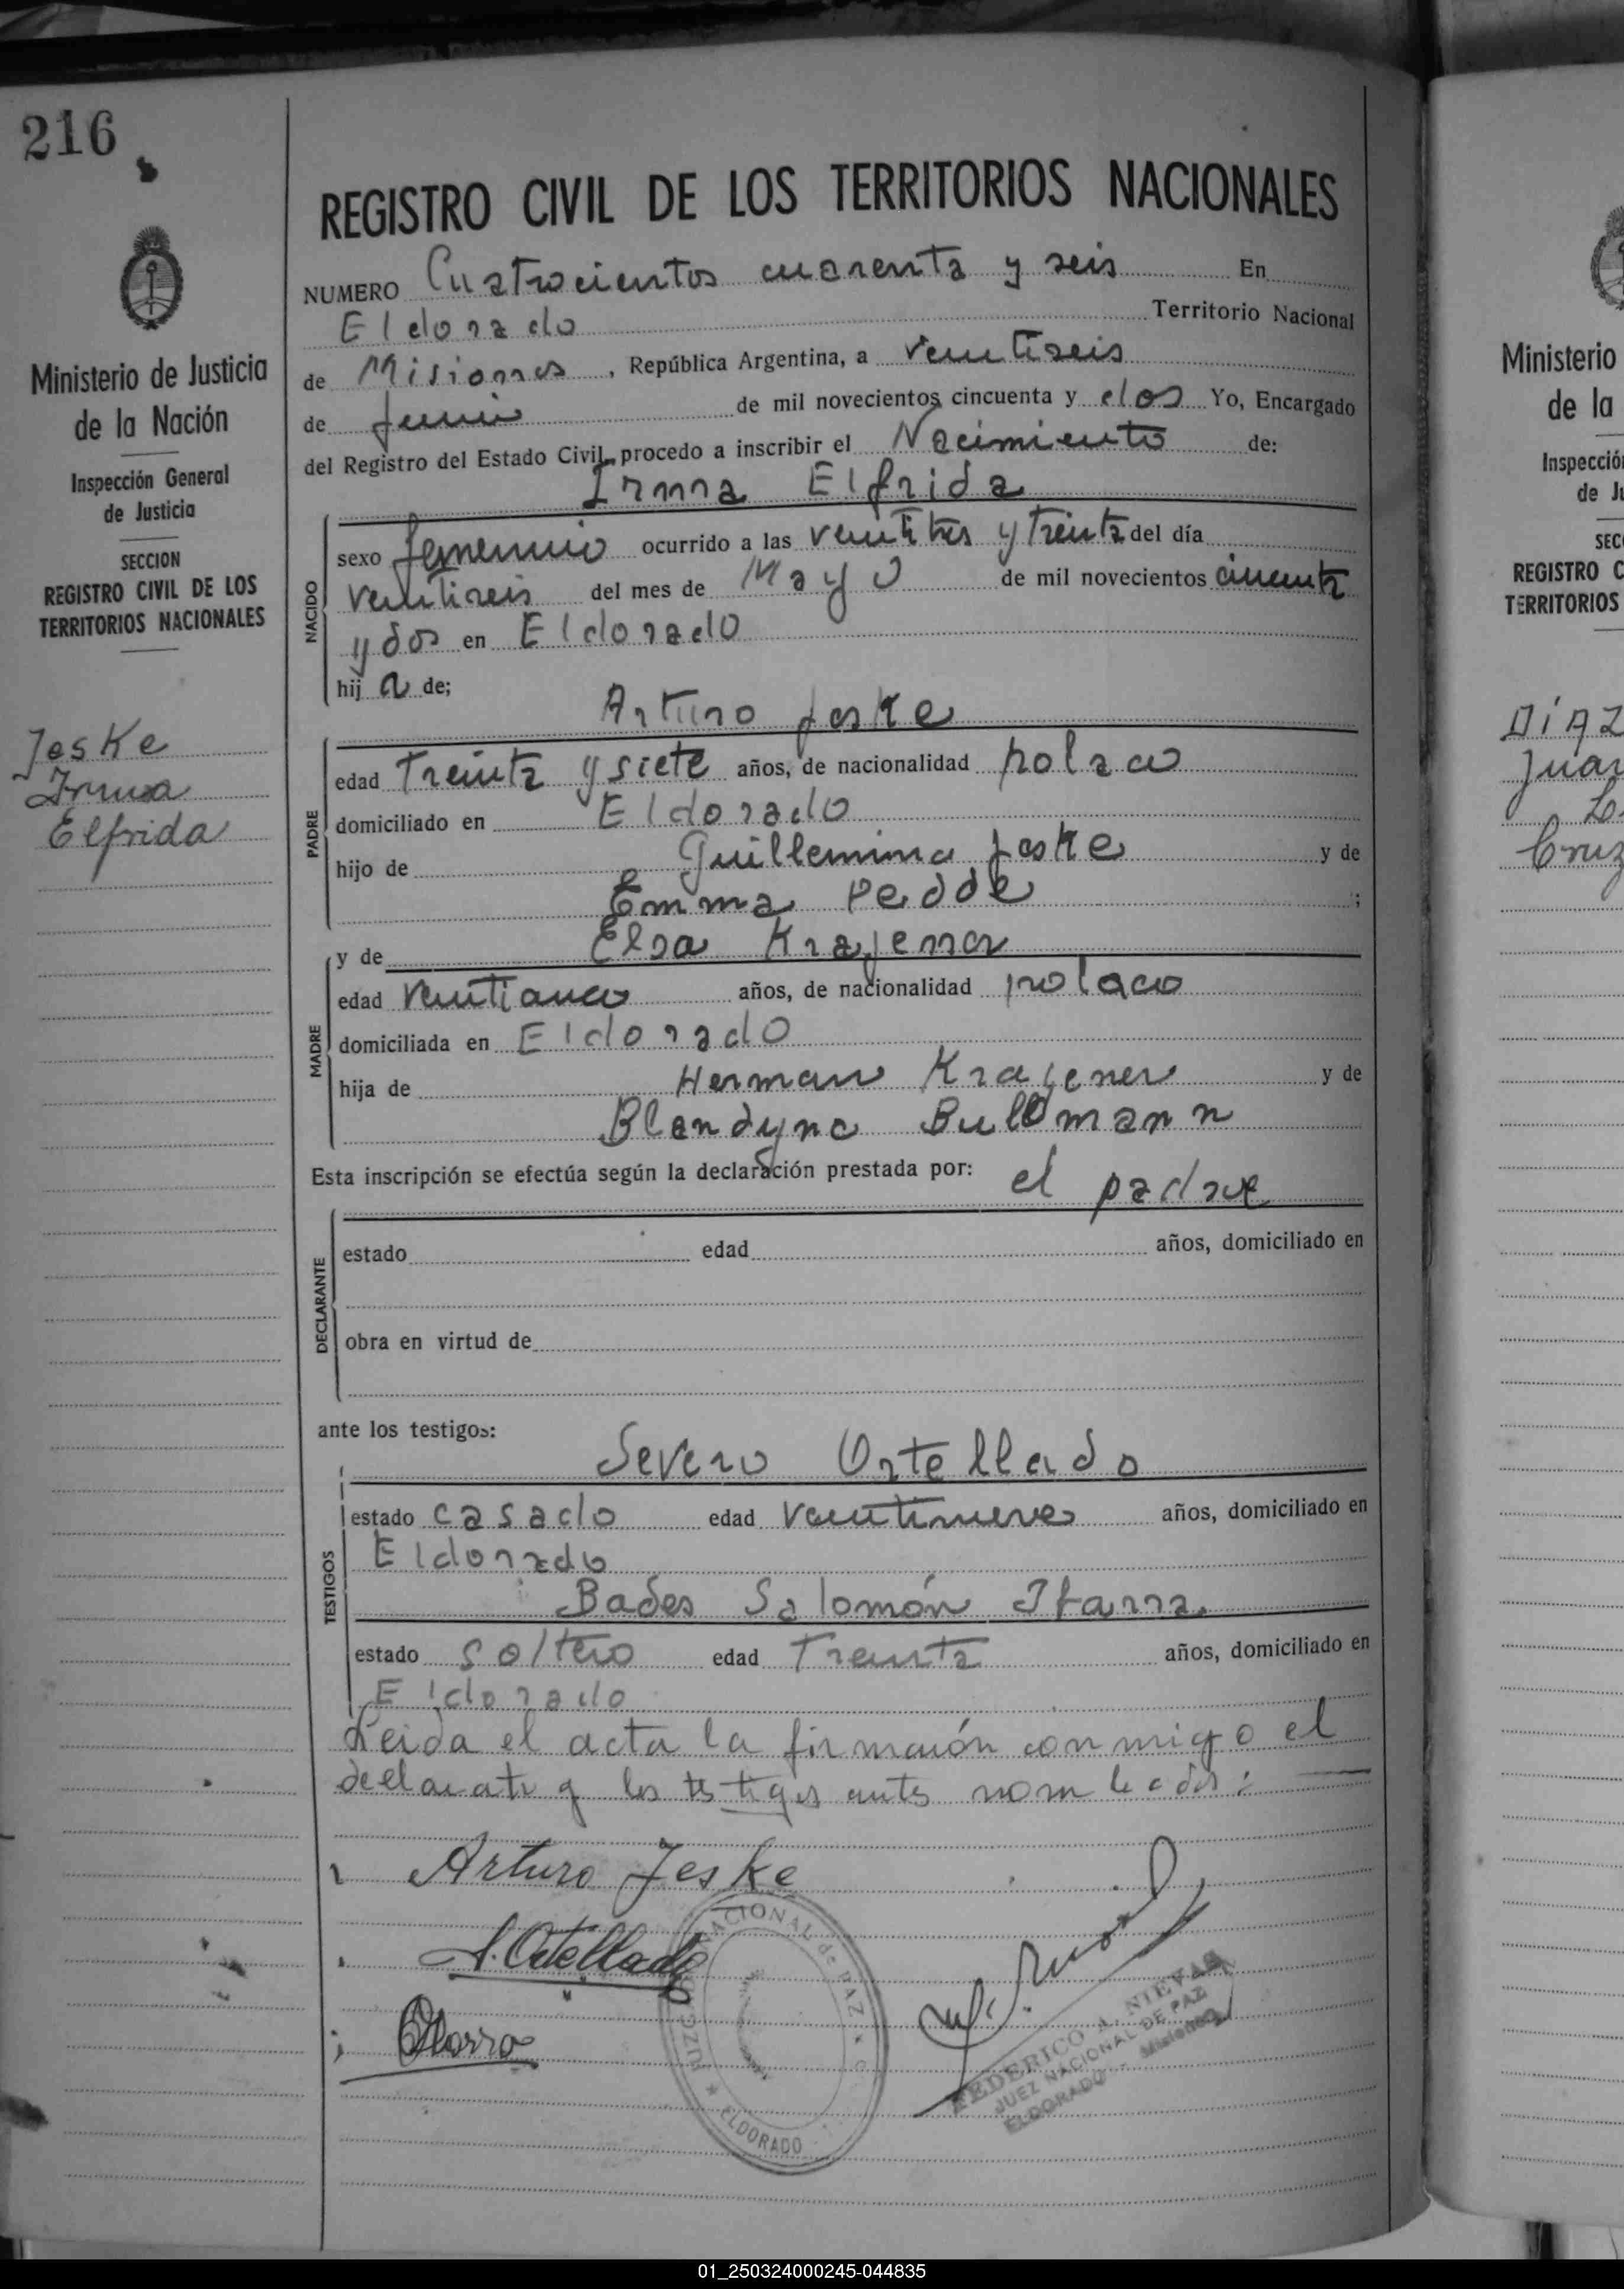 216
Ministerio de Justicia
de la Nación
Inspección General
de Justicia
SECCION
REGISTRO CIVIL DE LOS
TERRITORIOS NACIONALES
Jeske
Irma
Elfrida
REGISTRO CIVIL DE LOS TERRITORIOS NACIONALES
NUMERO Cuatrocientos cuarenta y seis En
Eldorado Territorio Nacional
de Misiones, República Argentina, a ventiseis
de Junio de mil novecientos cincuenta y dos Yo, Encargado
del Registro del Estado Civil, procedo a inscribir el Nacimiento de:
Irma Elfrida
NACIDO
sexo femenino ocurrido a las ventitres y treinta del día
ventiseis del mes de Mayo de mil novecientos cincuenta
y dos en Eldorado
hij a de;
Arturo Jeske
PADRE
edad Treinta y siete años, de nacionalidad polaco
domiciliado en Eldorado
hijo de Guillermina Jeske y de
Emma Pedde ;
MADRE
y de Elsa Krajena
edad venticinco años, de nacionalidad polaco
domiciliada en Eldorado
hija de Herman Krajener y de
Blandyna Bullmann
Esta inscripción se efectúa según la declaración prestada por: el padre
DECLARANTE
estado edad años, domiciliado en
obra en virtud de
ante los testigos:
Severo Ortellado
TESTIGOS
estado casado edad ventinueve años, domiciliado en
Eldorado
Bades Salomón
estado soltero edad Treinta años, domiciliado en
Eldorado
Leida el acta la firmación conmigo el
declarante y los testigos antes nombrados:
Arturo Jeske
S. Ortellado
JUZGADO NACIONAL de PAZ
ELDORADO
FEDERICO A. NIEVAS
JUEZ NACIONAL DE PAZ
ELDORADO - Misiones
Ministerio
de la
Inspección
de Ju
SECC
REGISTRO C
TERRITORIOS
DÍAZ
Juan
Cruz
01_250324000245-044835